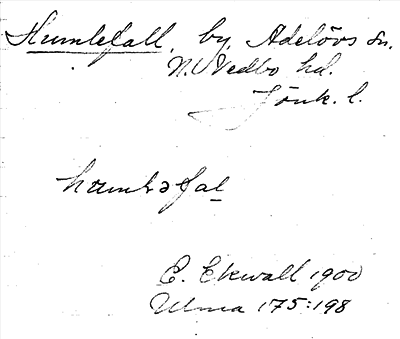 Humlefall, by, Adelövs sn.
N. Vedbo hd.
Jönk. l.
E. Ekwall 1900
Ulma 175:198